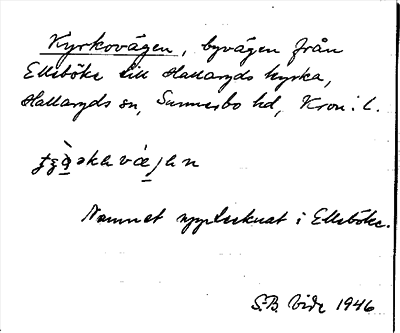 Kyrkovägen, byvägen från
Ellsböke till Hallaryds kyrka,
Hallaryds sn, Sunnerbo hd, Kron:l.
Namnet upptecknat i Ellsböke.
S.B. Vide 1946